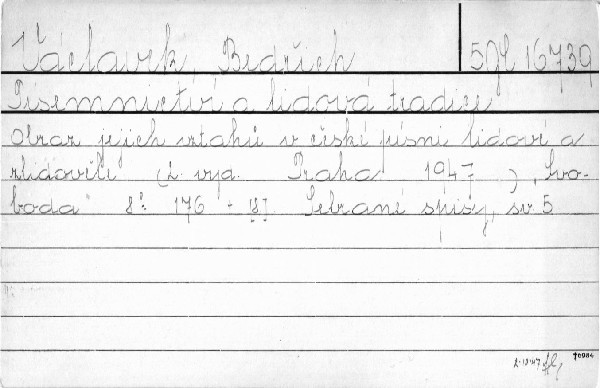 Václavek Bedřich
Písemnictví a lidová tradice
Obraz jejich vztahů v české písni lidové a
zlidovělé (2. vyd. Praha 1947), Svo-
boda" 8° 176 - [8] Sebrané spisy, sv. 5
70984